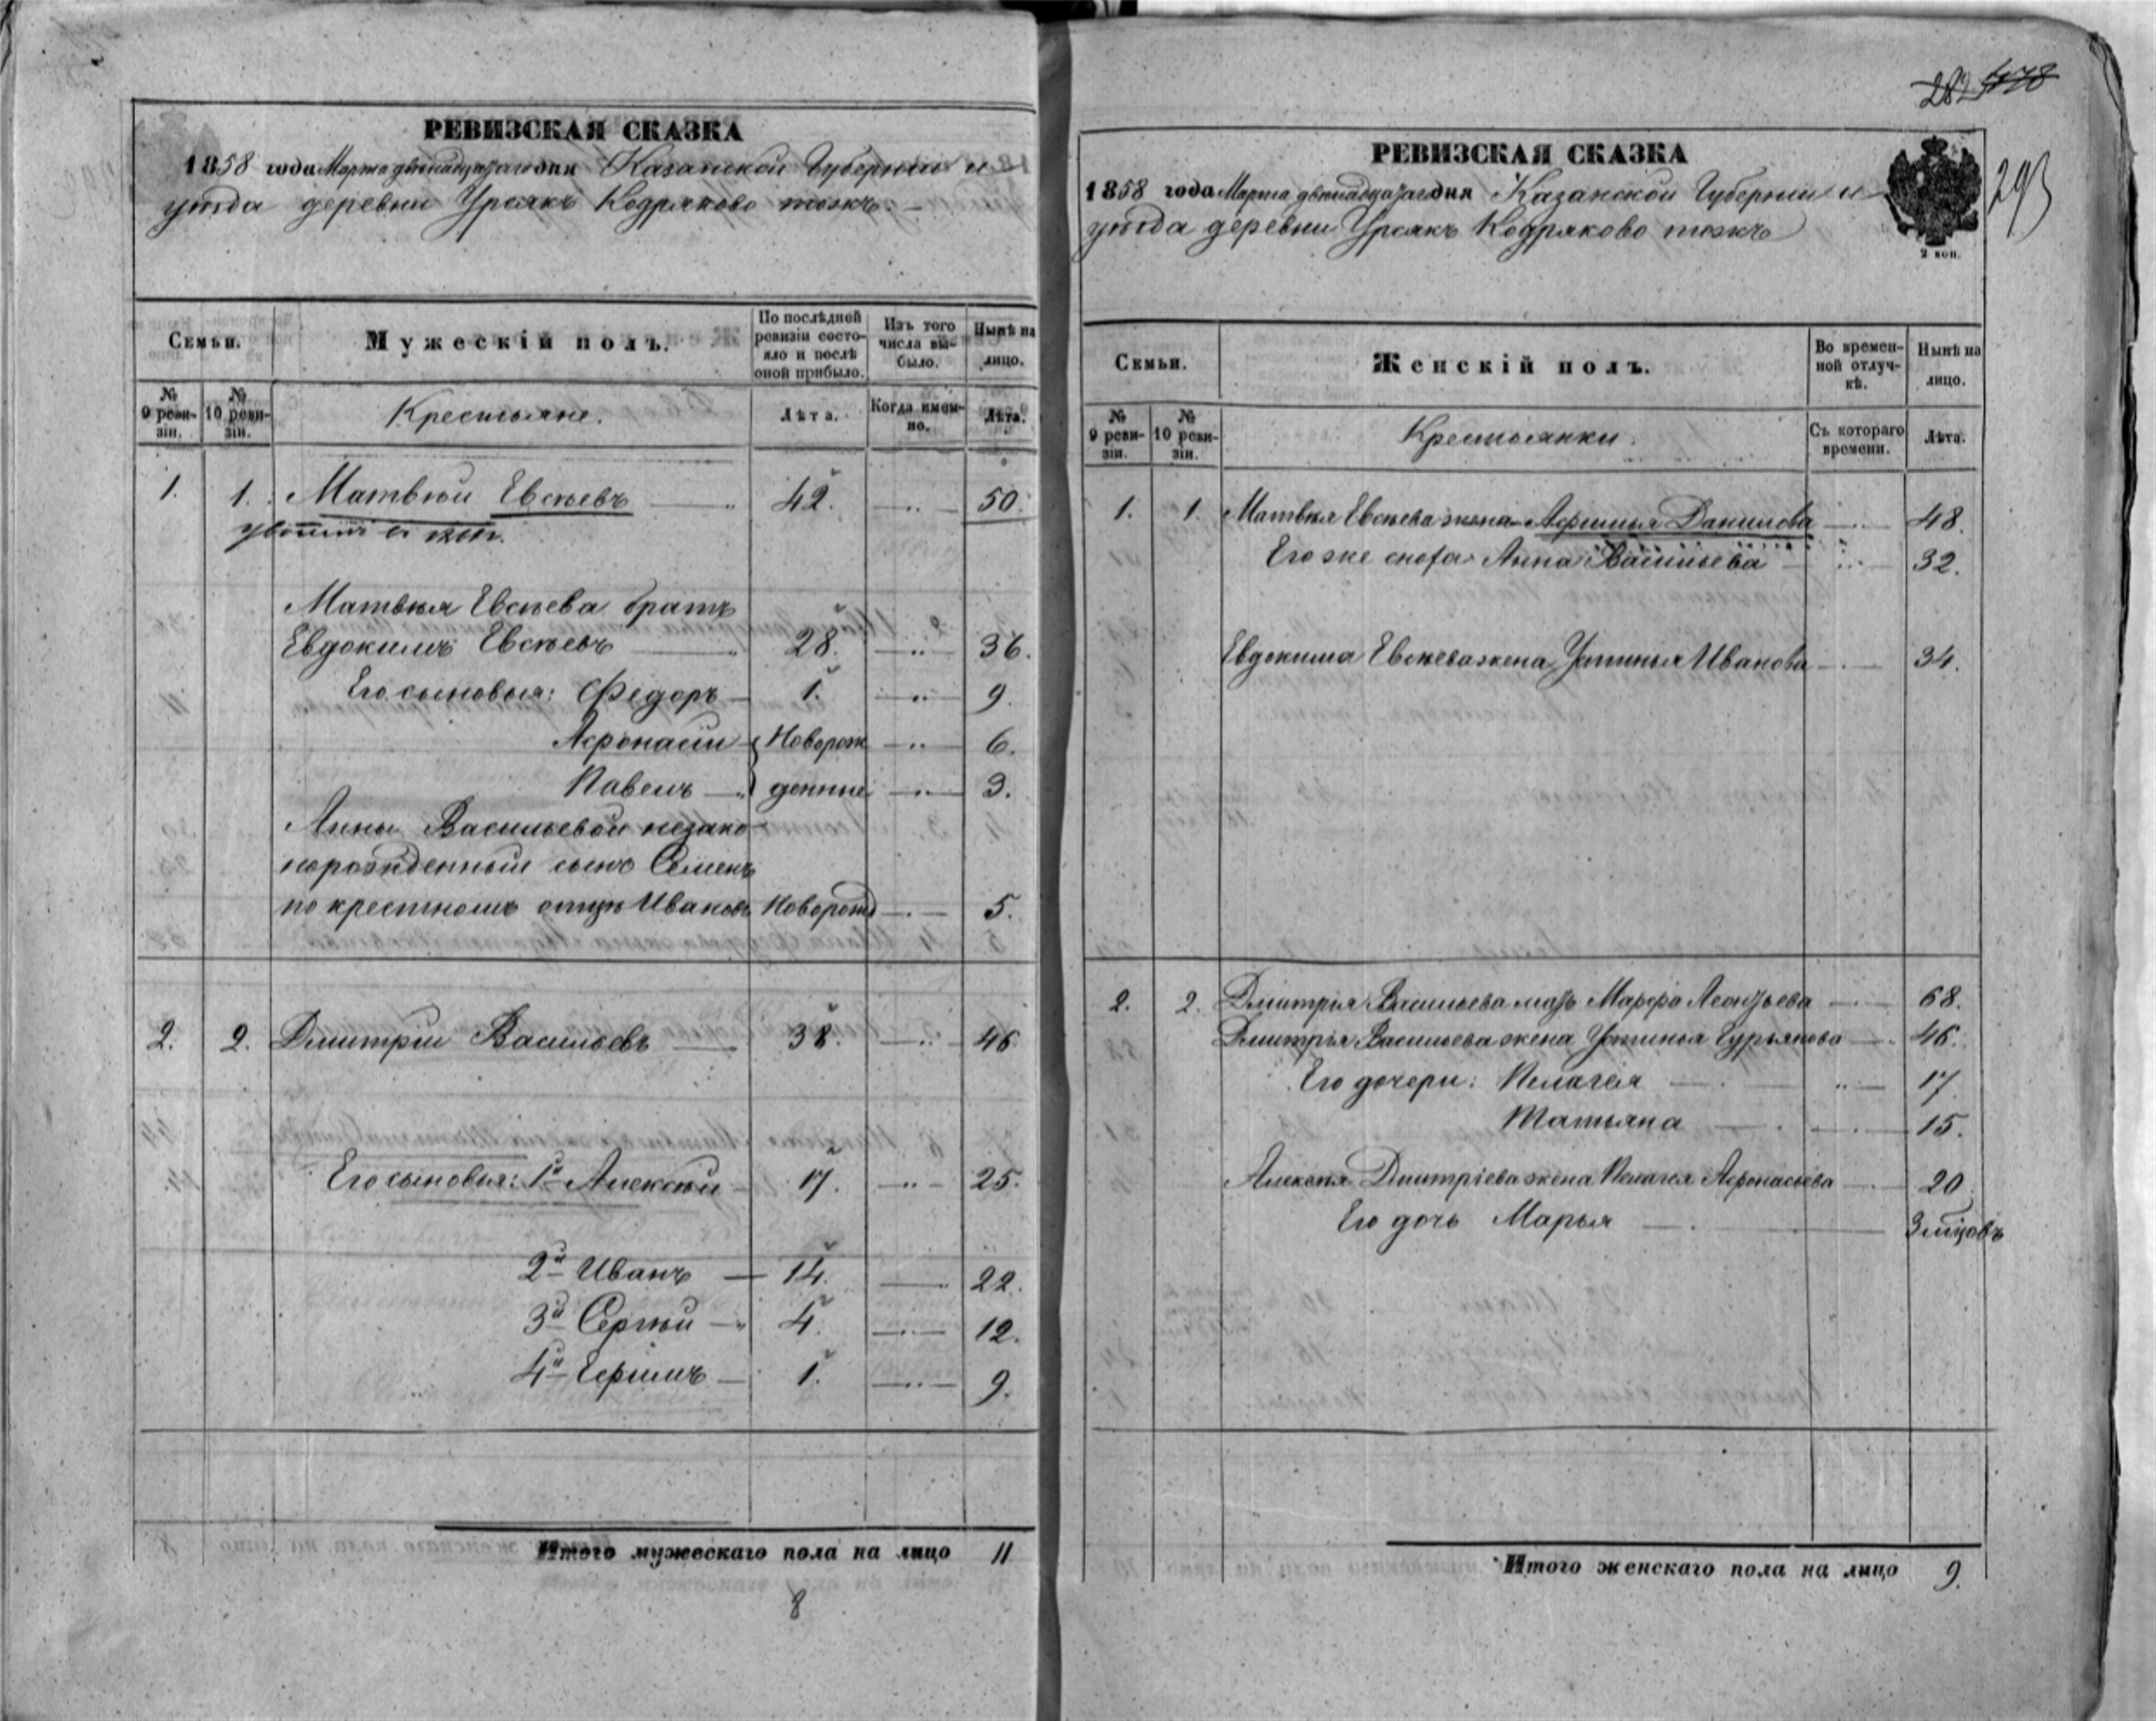 РЕВИЗСКАЯ СКАЗКА
1858 года Марта двѣнадцатаго дня Казанской Губерніи и
уѣзда деревни Урсякъ Кодряково тожъ.
Семьи.
Мужескій полъ.
По послѣдней ревизіи состояло и послѣ оной прибыло.
Изъ того числа выбыло.
Нынѣ на лицо.
№ 9 ревизіи.
№ 10 ревизіи.
Крестьяне.
Лѣта.
Когда именно.
Лѣта.
1. 1. Матвѣй Евсѣевъ 42. 50.
Матвѣя Евсѣева братъ
Евдокимъ Евсѣевъ 28. 36.
Его сыновья: Федоръ 1. 9.
Афонасій Новорож 6.
Павелъ денные 3.
Анны Васильевой незако
норожденный сынъ Семенъ
по крестномъ отцѣ Ивановъ Новорожд 5.
2. 2. Дмитрій Васильевъ 38. 46
Его сыновья: 1й Алексѣй 17. 25.
2й Иванъ 14. 22.
3й Сергѣй 4. 12.
4й Ефимъ 1. 9.
Итого мужескаго пола на лицо 11
8
282 478
293
РЕВИЗСКАЯ СКАЗКА
1858 года Марта двѣнадцатаго дня Казанской Губерніи и
уѣзда деревни Урсякъ Кодряково тожъ
2 коп.
Семьи.
Женскій полъ.
Во временной отлучкѣ.
Нынѣ на лицо.
№ 9 ревизіи.
№ 10 ревизіи.
Крестьянки.
Съ котораго времени.
Лѣта.
1. 1. Матвѣя Евсѣева жена Афимья Данилова 48.
Его же сноха Анна Васильева 32.
Евдокима Евсѣева жена Устинья Иванова 34.
2. 2. Дмитрія Васильева мать Марфа Леонтьева 68.
Дмитрія Васильева жена Устинья Гурьянова 46.
Его дочери: Пелагея 17.
Татьяна 15.
Алексѣя Дмитріева жена Пелагея Афонасьева 20
Его дочь Марья 3 мѣцовъ
Итого женскаго пола на лицо 9.